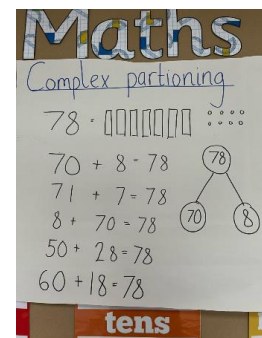 Maths
Complex partioning
78 =
70 + 8 = 78
71 + 7 = 78
8 + 70 = 78
50 + 28 = 78
60 + 18 = 78
78
70 8
tens